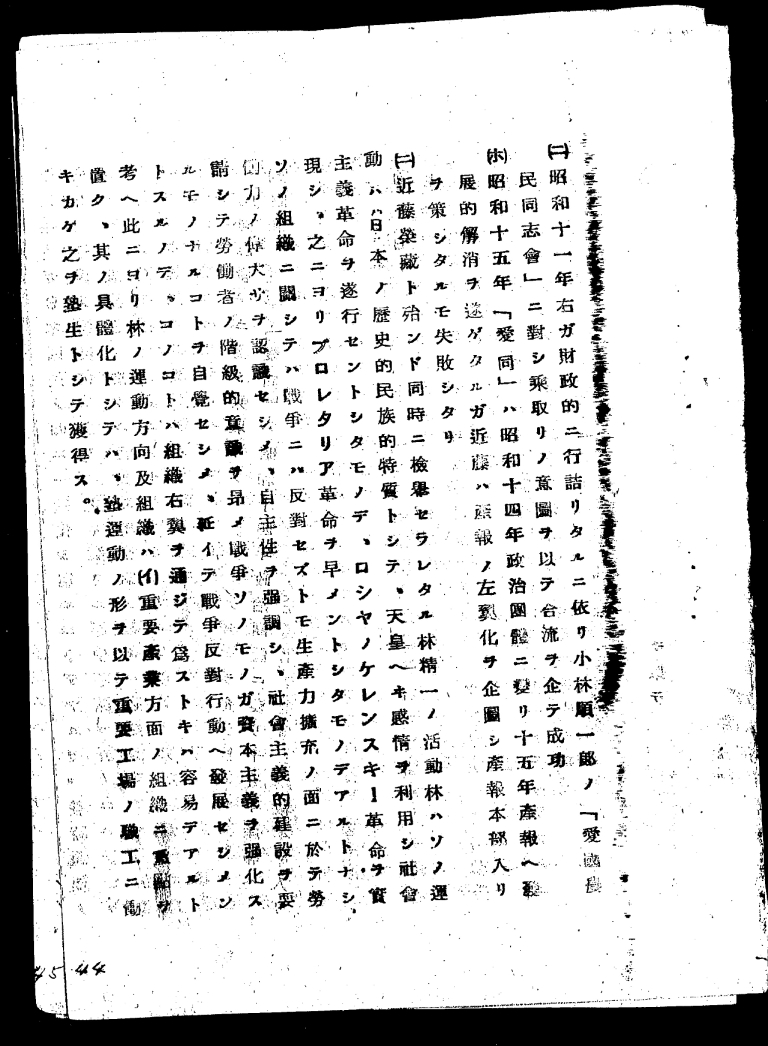 ㈡昭和十一年右ガ財政的ニ行詰リタルニ依リ小林順一郎ノ「愛國農
民同志會」ニ對シ乘取リノ意圖ヲ以テ合流ヲ企テ成功
㈭昭和十五年「愛同」ハ昭和十四年政治團體ニ變リ十五年產報ヘ發
展的解消ヲ遂ゲタルガ近藤ハ產報ノ左翼化ヲ企圖シ產報本部入リ
ヲ策シタルモ失敗シタリ
㈡近藤榮藏ト殆ンド同時ニ檢擧セラレタル林精一ノ活動林ハソノ運
動ハ日本ノ歷史的民族的特質トシテ、天皇ヘキ感情ヲ利用シ社會
主義革命ヲ遂行セントシタモノデ、ロシヤノケレンスキー革命ヲ實
現シ、之ニヨリプロレタリア革命ヲ早メントシタモノデアルトナシ
ソノ組織ニ關シテハ戰爭ニハ反對セズトモ生產力擴充ノ面ニ於テ勞
働力ノ偉大サヲ認識セシメ、自主性ヲ强調シ、社會主義的建設ヲ要
請シテ勞働者ノ階級的意識ヲ昂メ戰爭ソノモノガ資本主義ヲ强化ス
ルモノナルコトヲ自覺セシメ、延イテ戰爭反對行動ヘ發展セシメン
トスルノデ、コノコトハ組織右翼ヲ通ジテ爲ストキハ容易デアルト
考ヘ此ニヨリ林ノ運動方向及組織ハ(イ)重要產業方面ノ組織ニ重點ヲ
置ク、其ノ具體化トシテハ、塾運動ノ形ヲ以テ重要工場ノ職工ニ働
キカケ之ヲ塾生トシテ獲得ス。
45 44